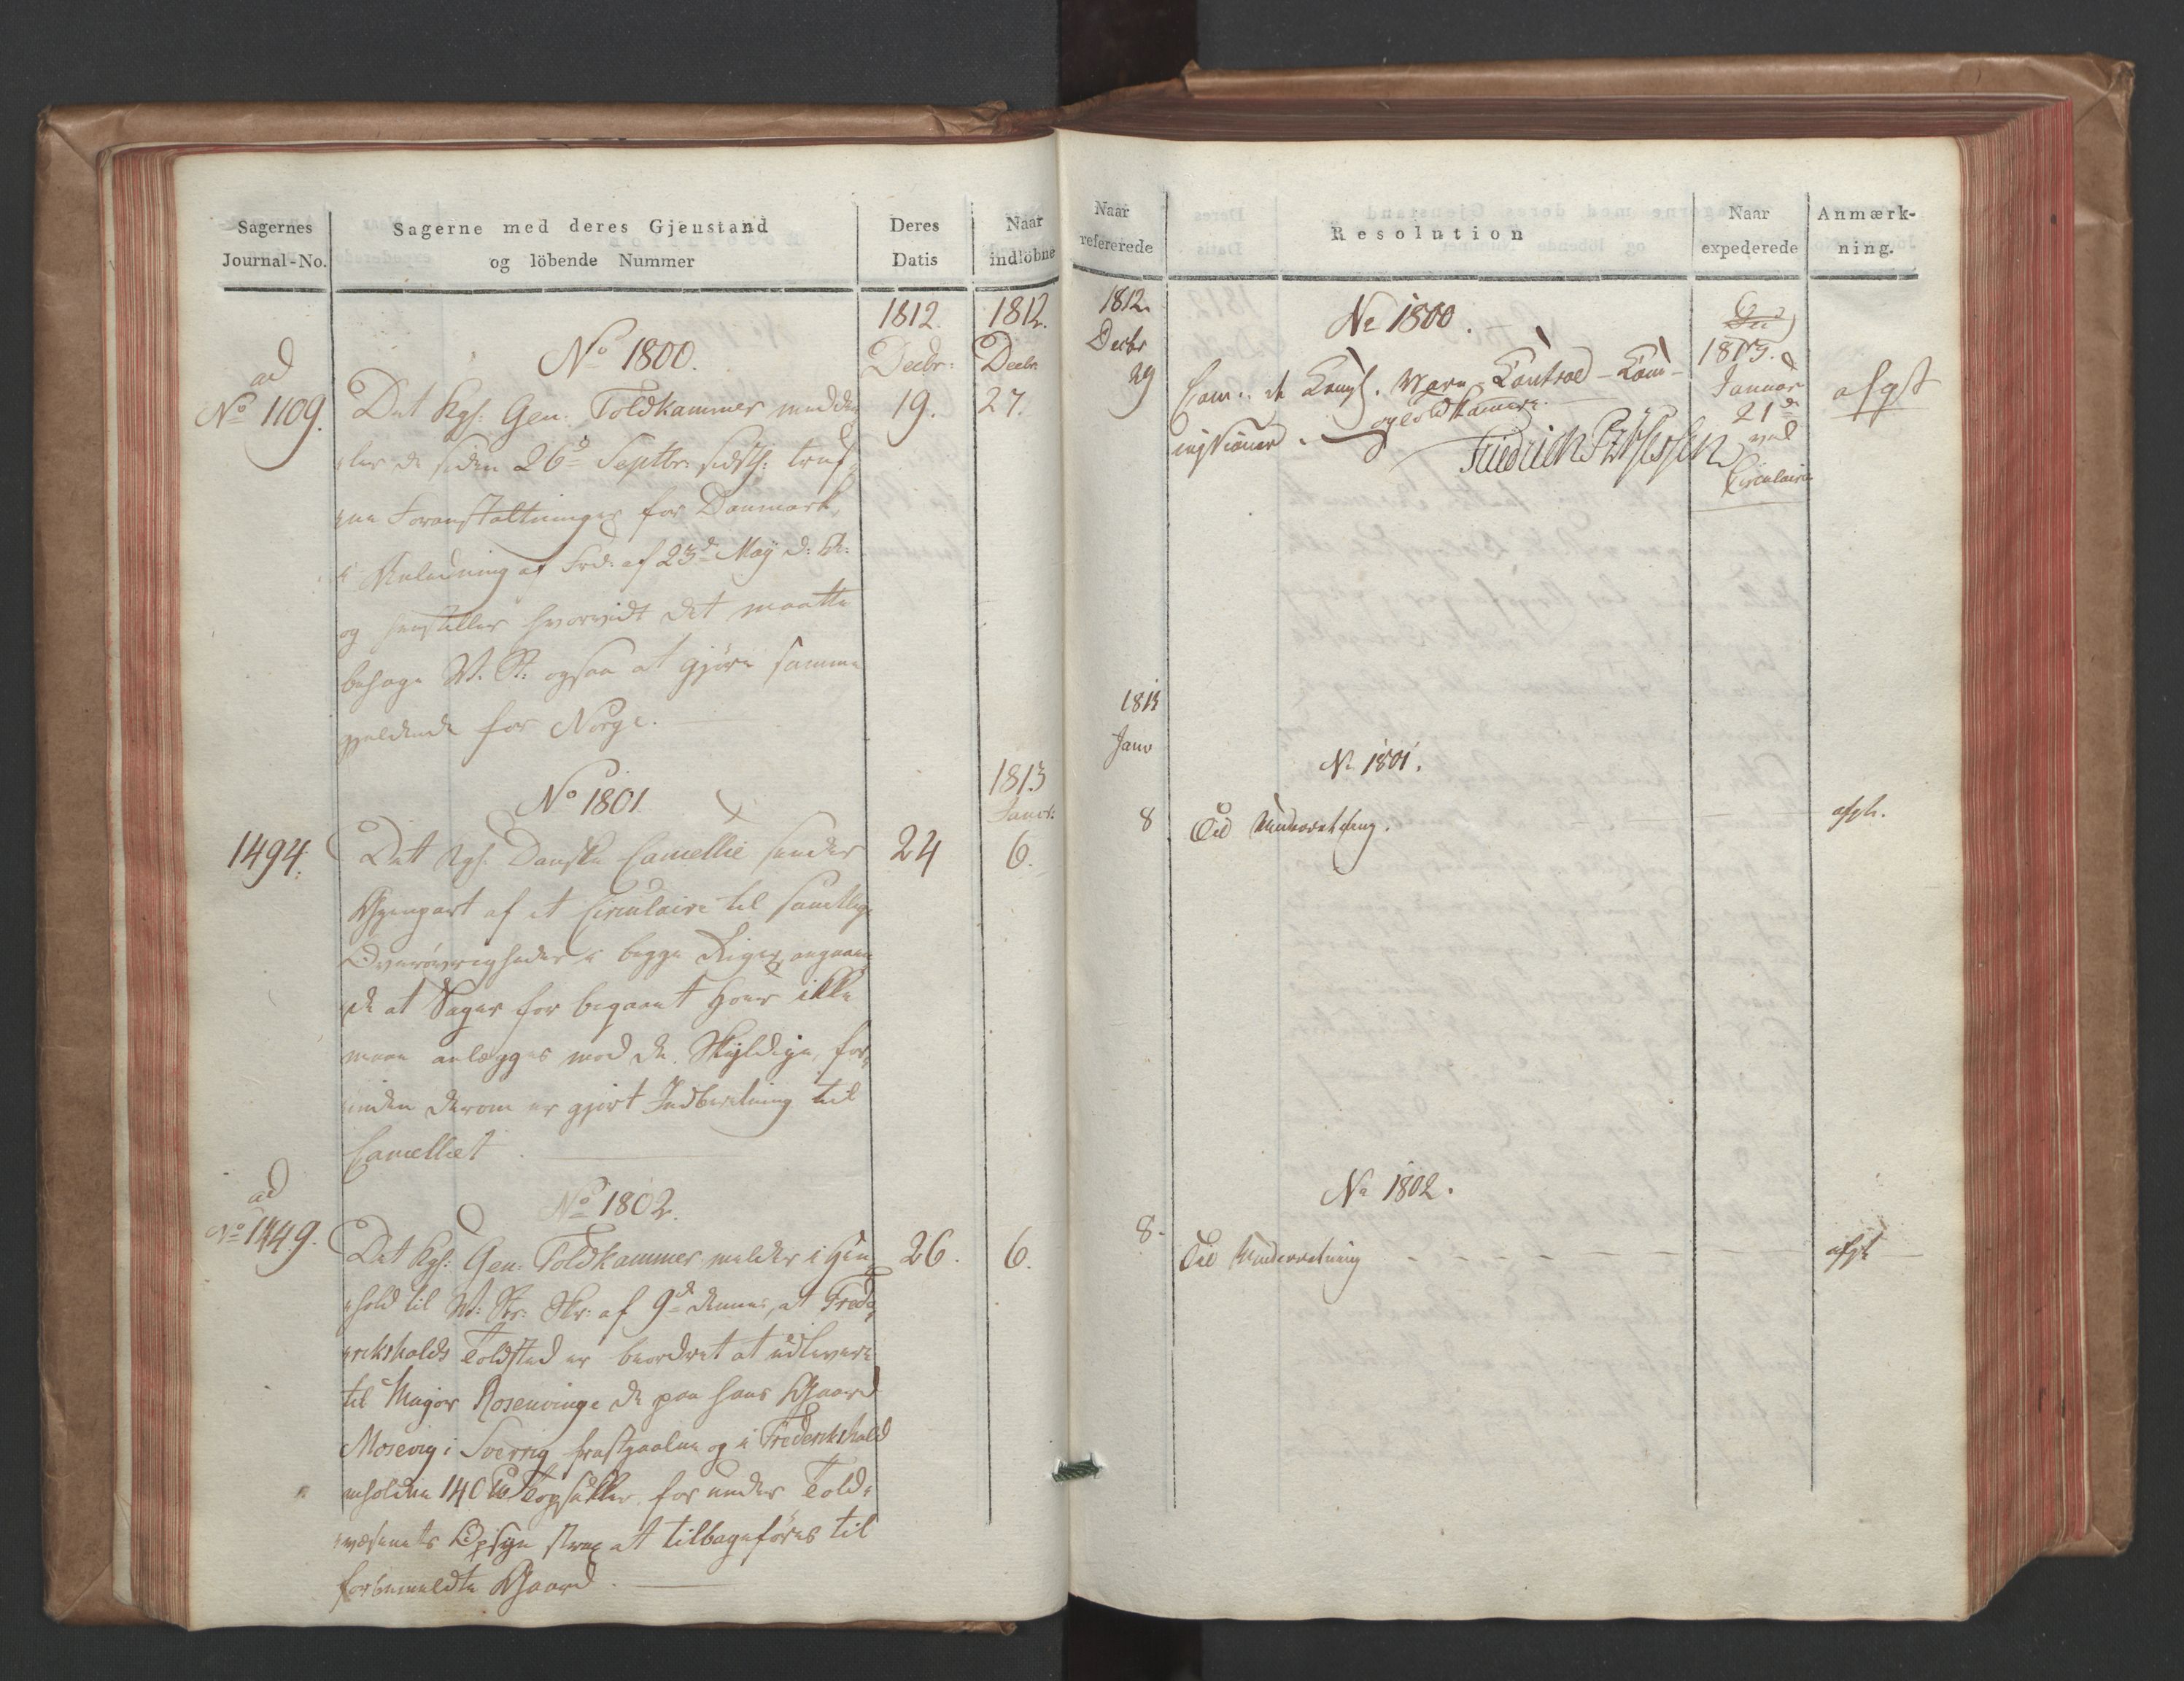 Sagernes
Journal-No.
Sagerne med deres Gjenstand
og löbende Nummer
Deres
Datis
Naar
indlöbne
1812.
Decbr:
1812.
Decbr
No 1800.
ad
No 1109.
Det Kgl: Gen: Toldkammer medde
ler de siden 26d Septbr: sidstl: truf
ne Foranstaltninger for Danmark,
i Anledning af Frd: af 23d May d: A:
og henstiller hvorvidt det maatte
behage V. R: ogsaa at gjöre samme
gjeldende for Norge.
19.
27.
No 1801.
1813
Janv:
1494.
Det Kgl. Danske Cancellie sender
Gjenpart af et Circulaire til samtlige
Overøvrigheder i begge Riger, angaaen
de at Sager for begaaet Hoer ikke
maae anlægges mod de Skyldige, for
inden derom er gjort Indberetning til
Cancelliet.
24
6.
No 1802.
ad
No 1449.
Det Kgl: Gen: Toldkammer melder i Hen
hold til V: Rs: Skr: af 9de dennes, at Frede
riksholds Toldsted er beordret at udlevere
til Major Rosenvinge de paa hans Gaard
Mosevig i Sverrig frastjaalne og i Frederikshald
anholdne 140 Topsukker, for under Told
væsenets Opsyn strax at tilbageføres til
forbemeldte Gaard.
26.
6.
Naar
refererede
Resolution
Naar
expederede
Anmærk-
ning.
1812.
Decbr
29
No 1800.
Com: de Kongl. Vare-Control-Com-
missioner.
og Toldkamere.
Friedrich PzHessen
1813.
Januar
21de
ved
Circulaire
afgst
1813
Janv
No 1801.
8
Til Underretning.
afgk.
No 1802.
8.
Til Underretning
afgk